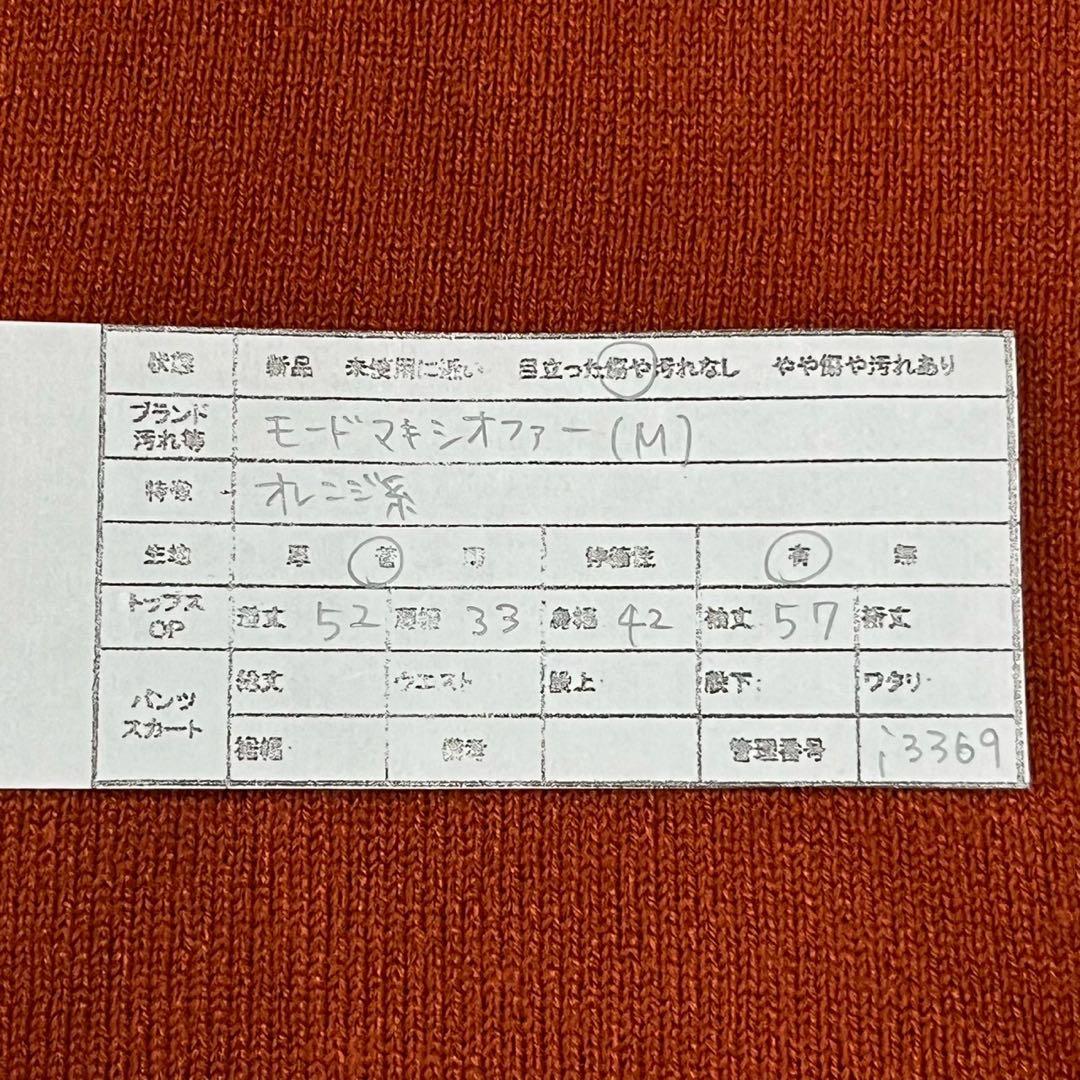 状態 新品 未使用に近い 目立った傷や汚れなし やや傷や汚れあり
ブランド
汚れ等 モードマキシオファー(M)
特徴 オレンジ系
生地 厚 普 薄 伸縮性 有 無
トップス
OP 着丈 52 肩幅 33 身幅 42 袖丈 57 裄丈
パンツ
スカート 総丈 ウエスト 股上 股下: ワタリ
裾幅 備考 管理番号 i3369